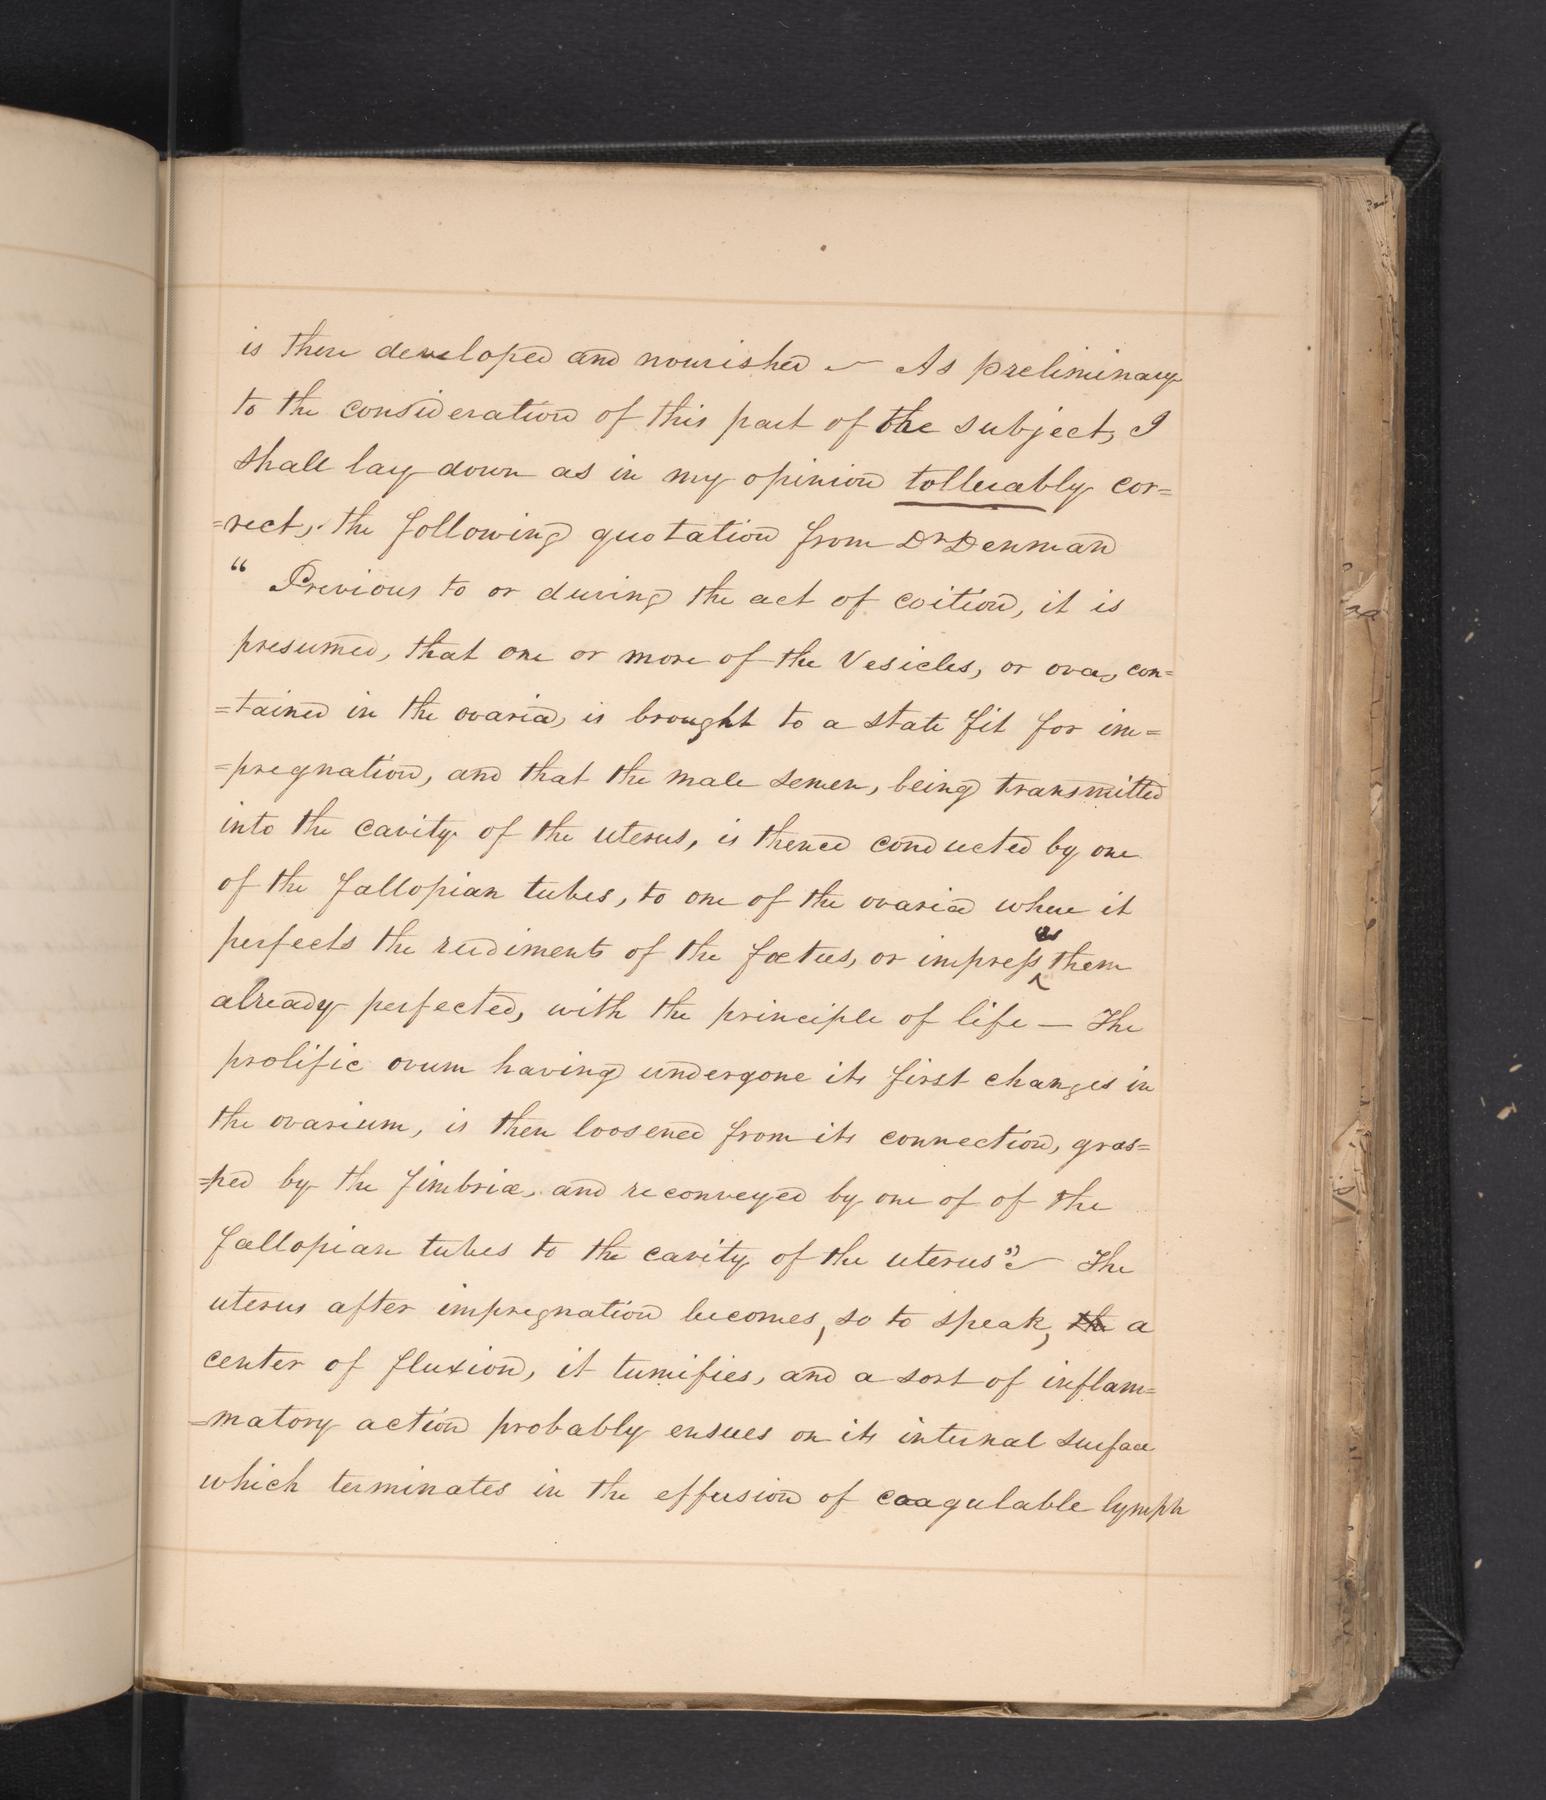 is there developed and nourished — As preliminary
to the consideration of this part of the subject, I
shall lay down as in my opinion tollerably cor=
=rect, the following quotation from Dr Denman
" Previous to or during the act of coition, it is
presumed, that one or more of the Vesicles, or ova, con=
=tained in the ovaria, is brought to a state fit for im=
=pregnation, and that the male semen, being transmitted
into the cavity of the uterus, is thence conducted by one
of the fallopian tubes, to one of the ovaria where it
perfects the rudiments of the fœtus, or impress^es them
already perfected, with the principle of life — The
prolific ovum having undergone its first changes in
the ovarium, is then loosened from its connection, gras=
=ped by the fimbriæ, and reconveyed by one of of the
fallopian tubes to the cavity of the uterus" — The
uterus after impregnation becomes, so to speak, th a
center of fluxion, it tumifies, and a sort of inflam=
=matory action probably ensues on its internal surface
which terminates in the effusion of coagulable lymph